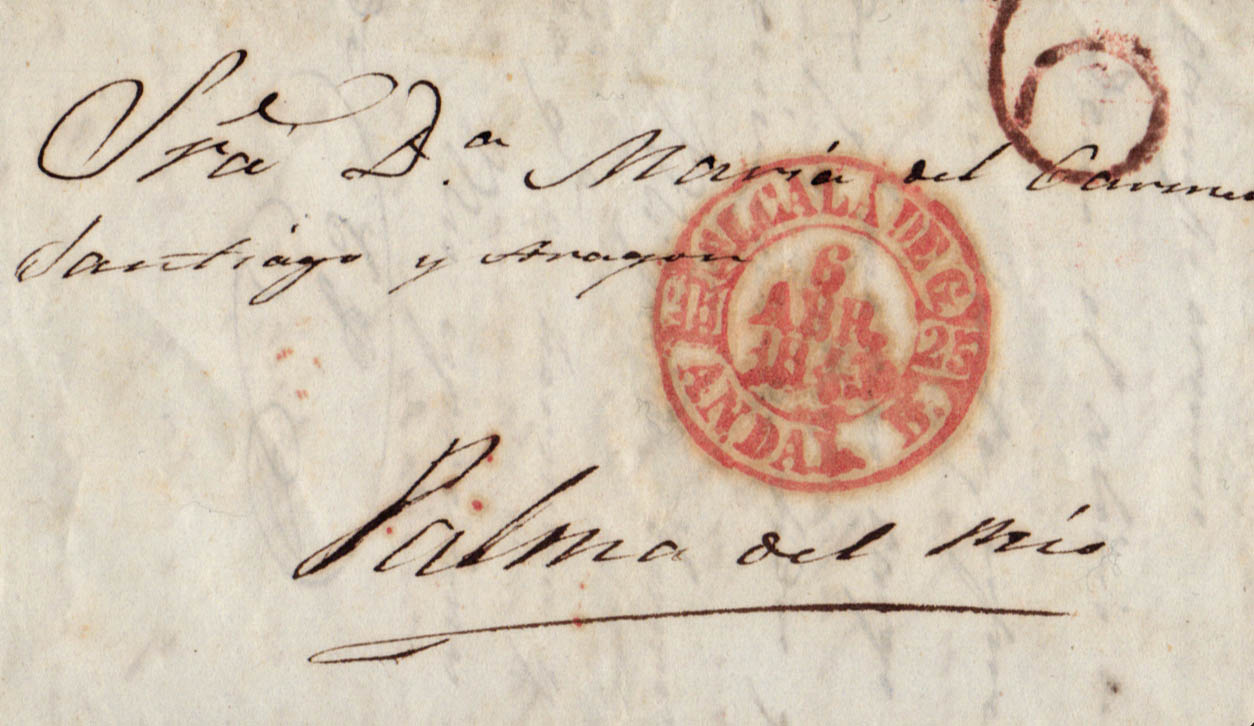 6
Sra D.a Maria del Carmen
Santiago y Aragon
ALCALA DE G.
6
ABR
25
ANDAL
Palma del Rio